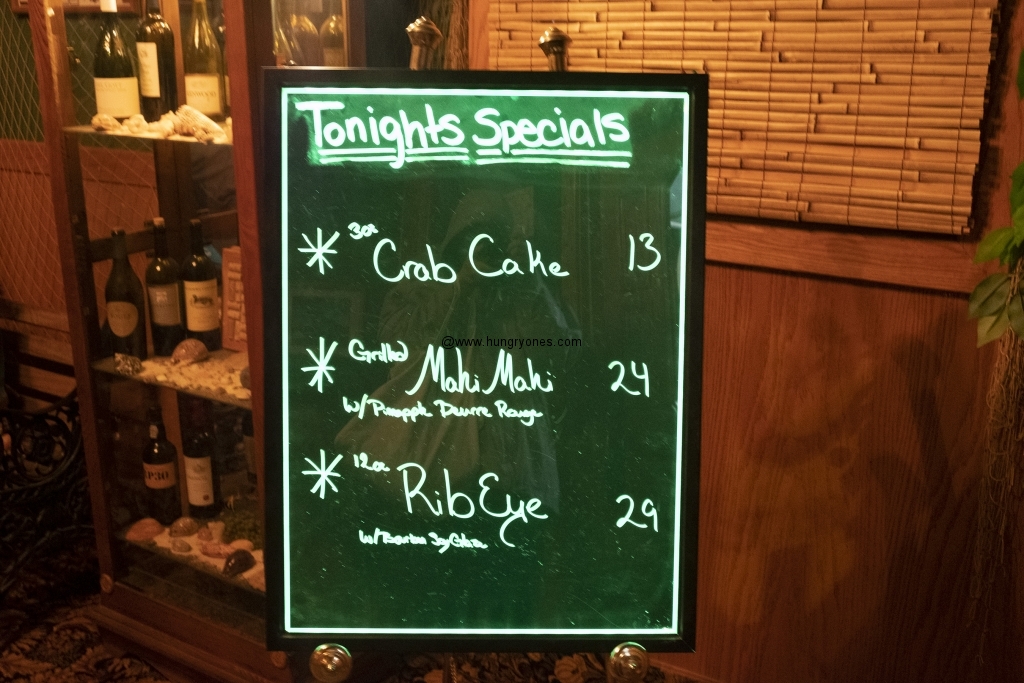 Tonights Specials
3oz Crab Cake 13
@www.hungryones.com
Grilled Mahi Mahi 24
W/ Pineapple Beurre Rouge
12oz Rib Eye 29
W/ Soy Glaze